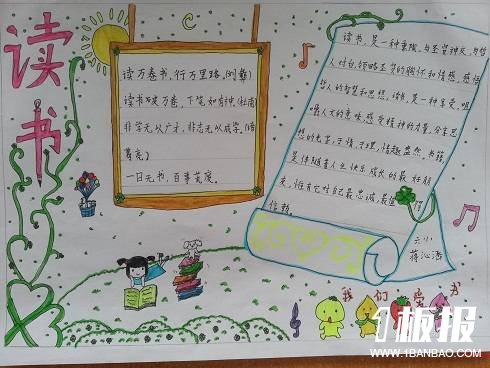 读书
读万卷书，行万里路。(刘彝)
读书破万卷，下笔如有神。(杜甫)
非学无以广才，非志无以成学。(诸
葛亮)
一日无书，百事荒废。
读书，是一种重陶，与圣贤神交，与哲
人对白，领略圣贤的胸怀和情感，感悟
哲人的智慧和思想。读书，是一种享受，咀
嚼人文的意味，感受精神的力量，分享思
想的光芒，于情，于理，情趣盎然。书籍
是伴随着人生快乐成长的最好朋
友，惟有它对自己最忠诚，最
信赖。
六小
蒋沁
我们爱书
1板报
WWW.1BANBAO.COM